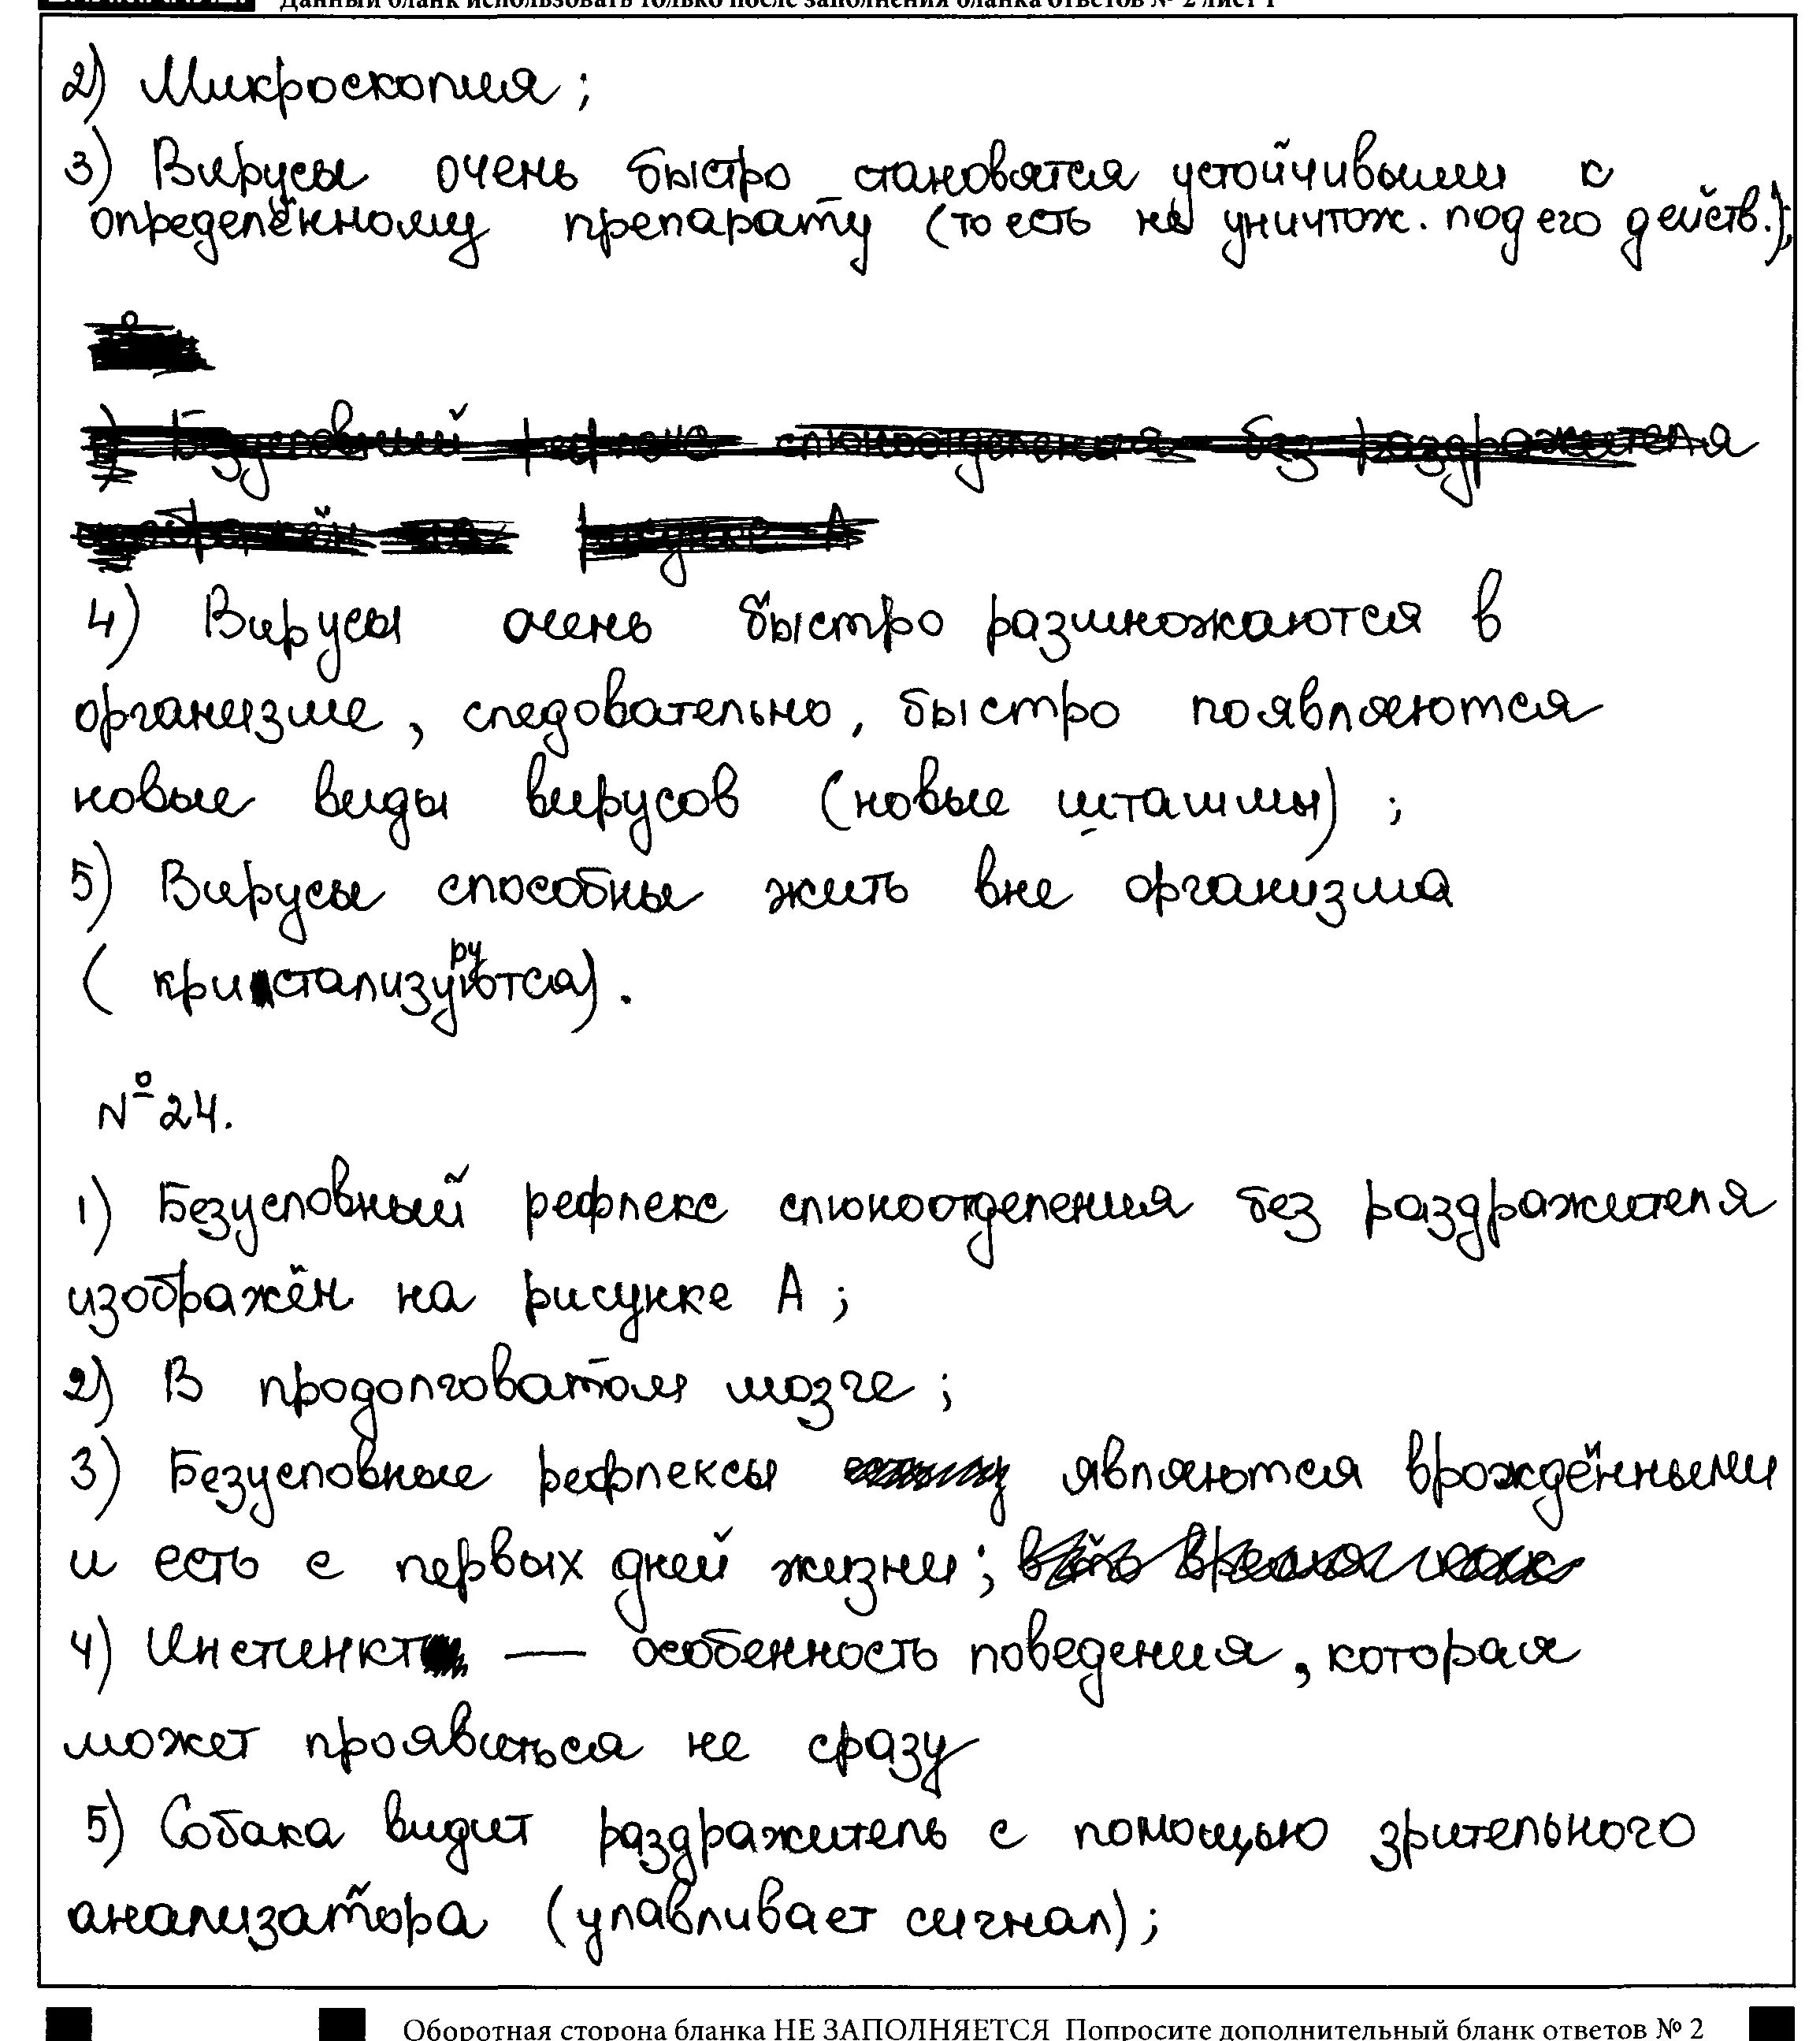 Данный бланк использовать только после заполнения бланка ответов № 2 лист 1
2) Микроскопия;
3) Вирусы очень быстро становятся устойчивыми к
определённому препарату (то есть не уничтож. под его действ.);
Безусловный рефлекс слюноотделения без раздражителя
изображён на рисунке А
4) Вирусы очень быстро размножаются в
организме, следовательно, быстро появляются
новые виды вирусов (новые шташмы);
5) Вирусы способны жить вне организма
ру
(кристализуются).
№ 24.
1) Безусловный рефлекс слюноотделения без раздражителя
изображён на рисунке А;
2) В продолговатом мозге;
3) Безусловные рефлексы являются врождёнными
и есть с первых дней жизни; в то время как
4) Инстинкт — особенность поведения, которая
может проявиться не сразу
5) Собака видит раздражитель с помощью зрительного
анализатора (улавливает сигнал);
Оборотная сторона бланка НЕ ЗАПОЛНЯЕТСЯ Попросите дополнительный бланк ответов № 2